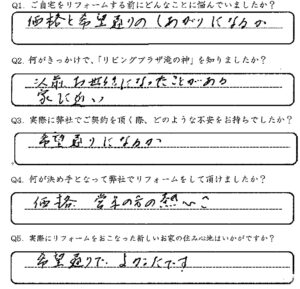 Q1. ご自宅をリフォームする前にどんなことに悩んでいましたか？
価格と希望通りのしあがりになるか
Q2. 何がきっかけで、「リビングプラザ滝の神」を知りましたか？
以前お世話になったことがある
家に近い
Q3. 実際に弊社でご契約を頂く際、どのような不安をお持ちでしたか？
希望通りになるか
Q4. 何が決め手となって弊社でリフォームをして頂けましたか？
価格 営業の方の熱心さ
Q5. 実際にリフォームをおこなった新しいお家の住み心地はいかがですか？
希望通りで よかったです